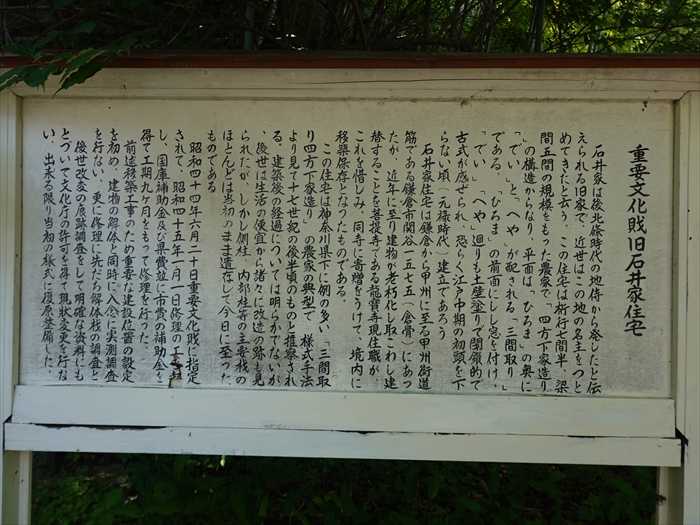 重要文化財旧石井家住宅
石井家は後北條時代の地侍から発したと伝
えられる旧家で、近世はこの地の名主をつと
めてきたと云う。この住宅は桁行七間半、梁
間五間の規模をもった農家で、四方下家造り
の構造からなり、平面は、「ひろま」の奥に
「でい」と「へや」が配される「三間取り」
である。「ひろま」の前面にしし窓を付け、
「でい」「へや」廻りも土壁塗りで閉鎖的で
古式が感ぜられ、恐らく江戸中期の初頭を下
らない頃(元禄時代)建立であろう
石井家住宅は鎌倉から甲州に至る甲州街道
筋である鎌倉市関谷一五七五(倉骨)にあっ
たが、近年に至り建物が老朽化し取こわし建
替することを菩提寺である龍寶寺現住職が
これを惜しみ、同寺に寄贈をうけて、境内に
移築保存となったものである。
この住宅は神奈川県下に例の多い「三間取
り四方下家造り」の農家の典型で、様式手法
より見て十七世紀の後半頃のものと推察され
る。建築後の経過については明らかでないが
、後世は生活の便宜から諸々に改造の跡も見
られたが、しかし側柱、内部柱等の主要状の
ほとんどは当初のまま遺存して今日に至った
ものである
昭和四十四年六月二十日重要文化財に指定
されて、昭和四十五年二月一日修理の工を起
し、国庫補助金及び県費並に市費の補助金を
得て工期九ヶ月をもって修理を行った。
前述移築工事のため重要な建設位置の設定
を初め、建物の解体と同時に入念に実測調査
を行ない、更に修理に先だち解体材の調査と
後世改変の痕跡調査をして明確な資料にも
とづいて文化庁の許可を得て現状変更を行な
い、出来る限り当初の様式に復原整備した。